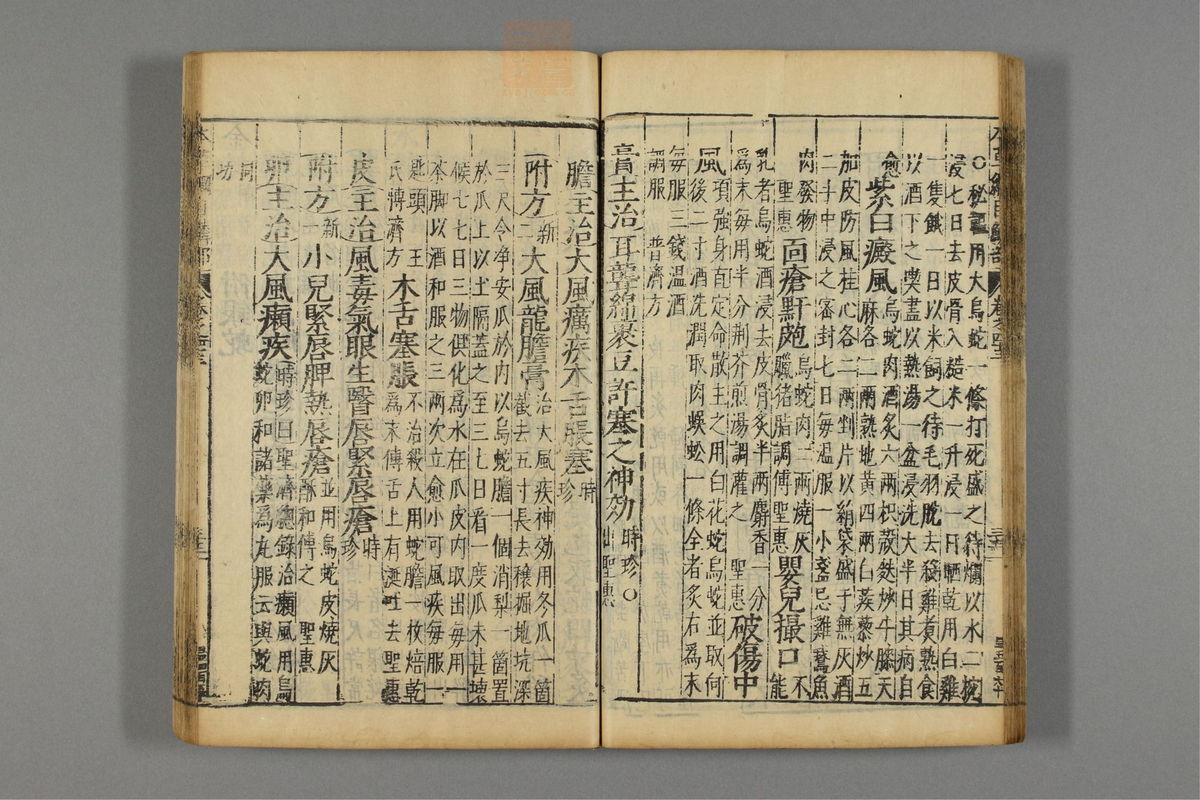 ○秘訣用大烏蛇一條打死盛之待爛以水二椀
浸七日去皮骨入糙米一升浸一日晒乾用白雞
一隻餓一日以米飼之待毛羽脫去殺雞煮熟食
以酒下之喫盡以熱湯一盆浸洗大半日其病自
愈紫白癜風烏蛇肉酒炙六兩枳殼麩炒牛膝天
麻各二兩熟地黃四兩白蒺藜炒五
加皮防風桂心各二兩剉片以絹袋盛于無灰酒
二斗中浸之密封七日每溫服一小盞忌雞鵝魚
肉發物
聖惠面瘡䵟皰烏蛇肉二兩燒灰
臘豬脂調傅聖惠嬰兒撮口不
能
乳者烏蛇酒浸去皮骨炙半兩麝香一分
為末每用半分荊芥煎湯調灌之聖惠破傷中
風項強身直定命散主之用白花蛇烏蛇並取何
後二寸酒洗潤取肉蜈蚣一條全者炙右為末
每服三錢溫酒
調服普濟方
膏主治耳聾綿裹豆許塞之神効時珍○
出聖惠
膽主治大風癘疾木舌脹塞時
珍
附方新
二大風龍膽膏治大風疾神効用冬瓜一箇
截去五寸長去穰掘地坑深
三尺令净安瓜於內以烏蛇膽一個消梨一箇置
於瓜上以土隔蓋之至三七日看一度瓜未甚壞
候七七日三物俱化為水在瓜皮內取出每用一
茶脚以酒和服之三兩次立愈小可風疾每服一
匙頭王
氏博濟方木舌塞脹不治殺人用蛇膽一枚焙乾
為末傅舌上有涎吐去聖惠
皮主治風毒氣眼生瞖唇緊唇瘡時
珍
附方新
一小兒緊唇脾熱唇瘡並用烏蛇皮燒灰
酥和傅之聖惠
卵主治大風癩疾時珍曰聖濟總錄治癩風用烏
蛇卵和諸藥為丸服云與蛇肉
同
功